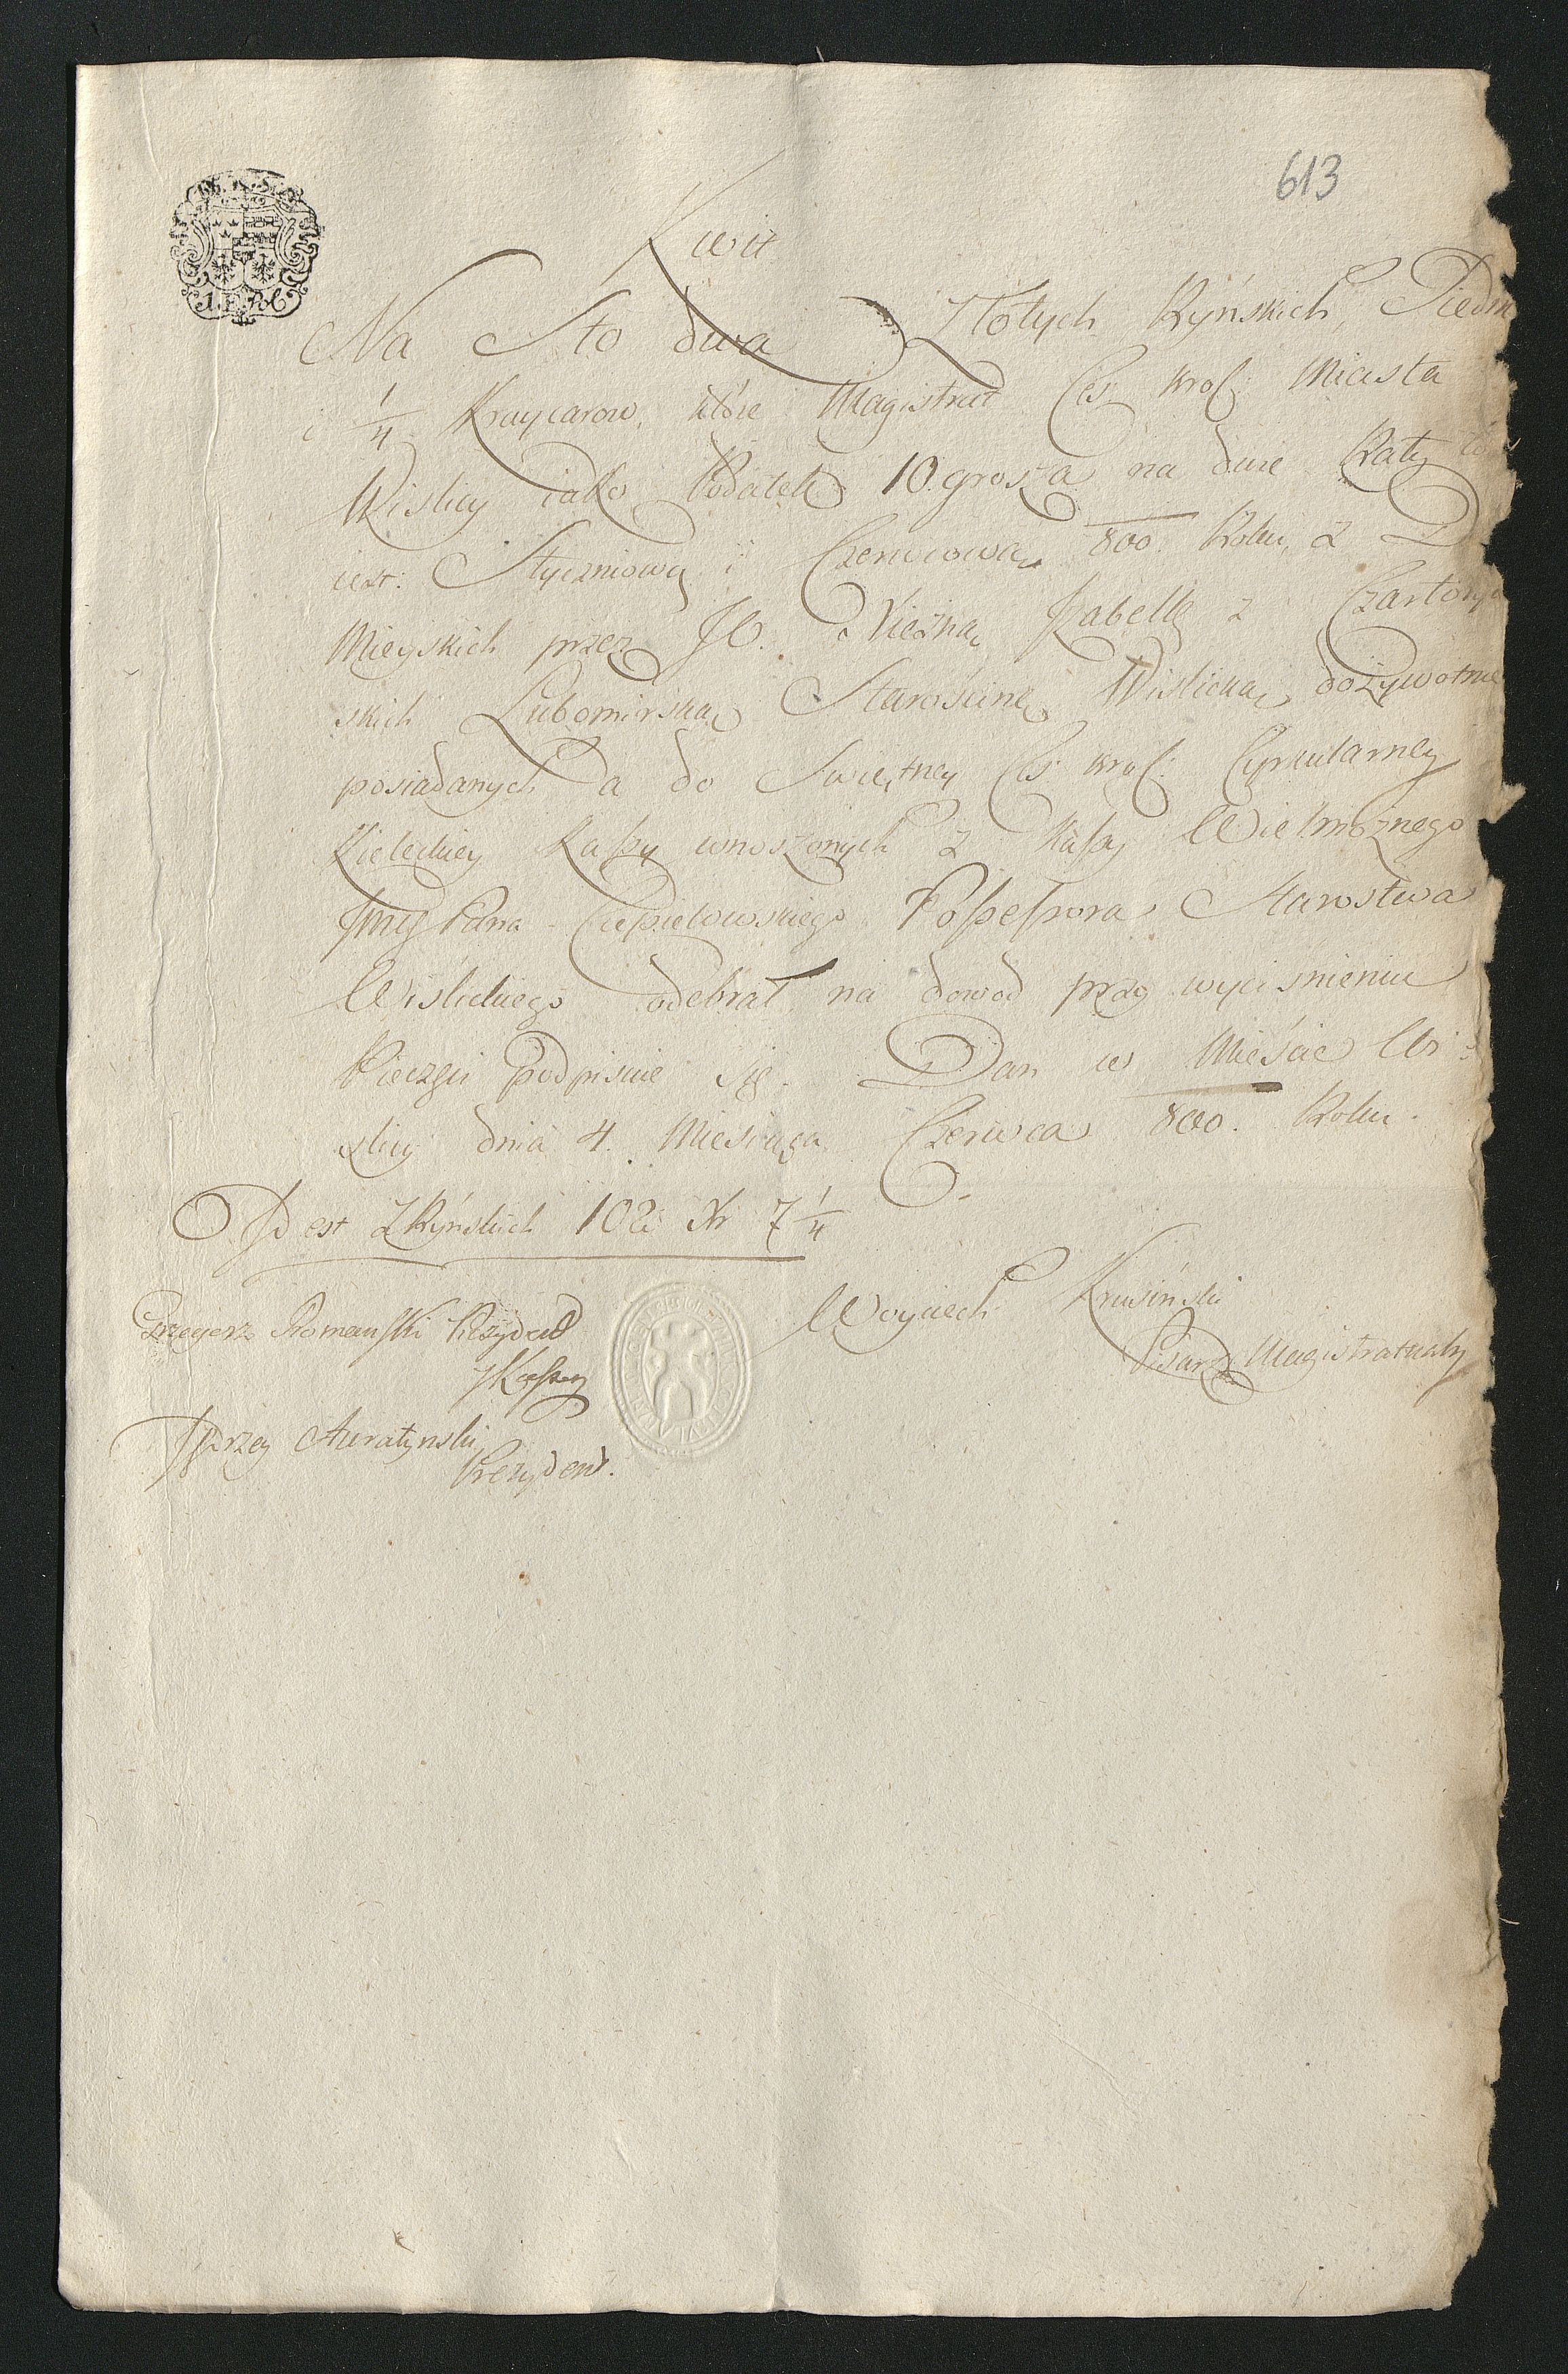 613
Kwit
Na Sto dwa Złotych Ryńskich, Siedm
i 1/4 Kraycarow, które Magistrat Ces: krol: Miasta
Wislicy iako Podatek 10. grosza na dwie Raty to
iest: Styczniową i Czerwcową 800. Roku, z D
Mieyskich przez JO. Xiężnę Izabellę z Czartory
skich Lubomirską Starościnę Wislicką dożywotnie
posiadanych a do Swietney Ces: krol: Cyrkularney
Kieleckiey Kaßy wnoszonych z Kaßy Wielmożnego
Jmć Pana Ciepielowskiego Poßeßora Starostwa
Wislickiego odebrał na dowod przy wyciśnieniu
Pieczęci podpisuie się. Dan w Mieście Wi
slicy dnia 4. Miesiąca Czerwca 800. Roku.
Id est ZRyńskich 102 Xr 7 1/4
Grzegorz Romanski Prezydent
Wojciech Krusiński
Pisarz Magistratualny
Prezydent.